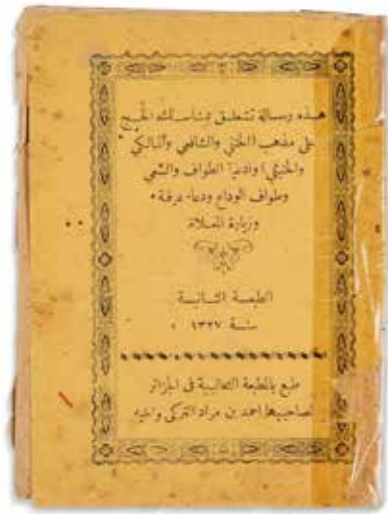 هذه رسالة تتعلق بمناسك الحج
على مذهب (الحنفي والشافعي والمالكي
والحنبلي) وادعية الطواف والسعي
وطواف الوداع ودعاء عرفة
وزيارة المعلاة
الطبعة الثانية
سنة ١٣٢٧
طبع بالمطبعة الثعالبية في الجزائر
لصاحبيها احمد بن مراد التركي واخيه